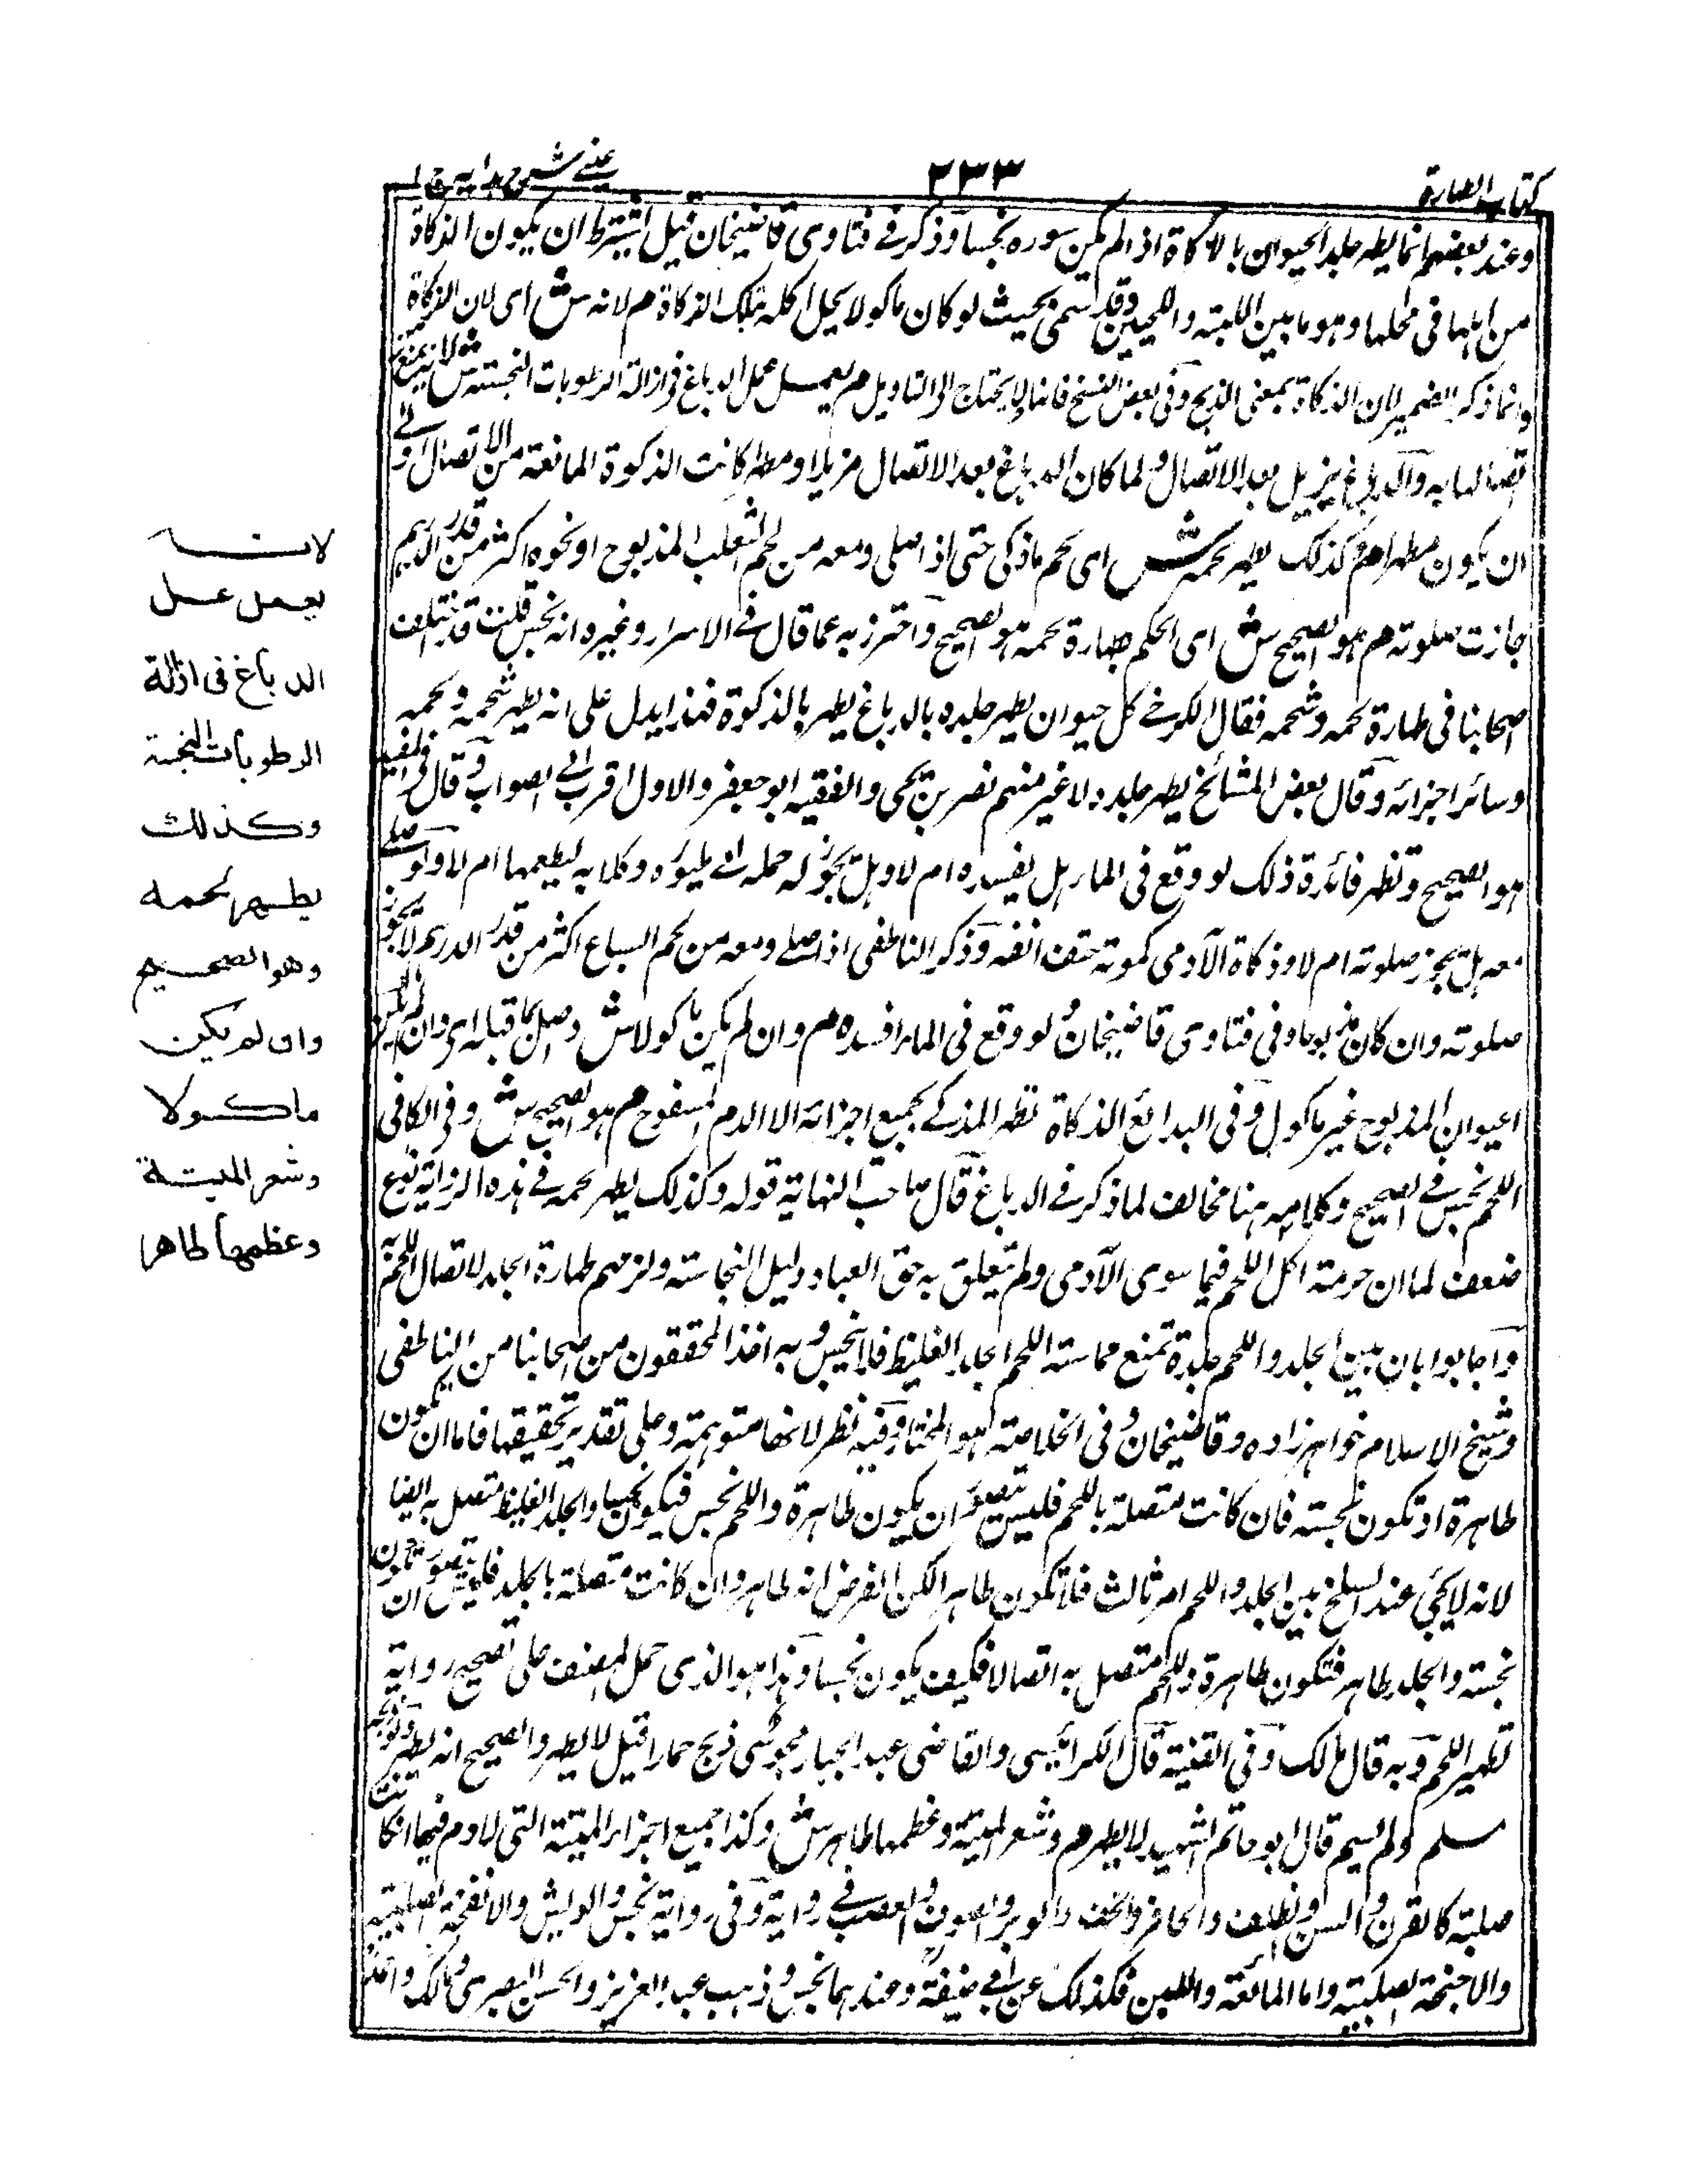 كتاب الطهارة
٢٣٣
عيني شرح هداية ج ١
وعند بعضهم انما يطهر جلد الحيوان بالذكاة اذا لم يكن سوره نجسا وذكر في فتاوى قاضيخان قيل يشترط ان يكون الذكاة
من اهلها في محلها وهو ما بين اللبة واللحيين وقد سمى بحيث لو كان ماكولا يحل اكله بتلك الذكاة م لانه ش اى لان الذكاة
وانما ذكر الضمير لان الذكاة بمعنى الذبح وفى بعض النسخ فانها ولا يحتاج الى التاويل م يعمل عمل الدباغ فى ازالة الرطوبات النجسة ش لانه يمنع
تصالها به والدباغ يزيل بعد الاتصال ولما كان الدباغ بعد الاتصال مزيلا ومطهرا كانت الذكوة المانعة من الاتصال اولى
ان يكون مطهرا م وكذلك يطهر لحمه ش اى لحم ماذكى حتى اذا صلى ومعه من لحم الثعلب المذبوح او نحوه اكثر من قدر الدرهم
جازت صلوته م هو الصحيح ش اى الحكم بطهارة لحمه هو الصحيح واحترز به عما قال في الاسرار وغيره انه نجس قلت قد اختلف
اصحابنا فى طهارة لحمه وشحمه فقال الكرخي كل حيوان يطهر جلده بالدباغ يطهر بالذكوة فهذا يدل على انه يطهر شحمه ولحمه
وسائر اجزائه وقال بعض المشائخ يطهر جلده لا غير منهم نصر بن يحى والفقيه ابو جعفر والاول اقرب الى الصواب وقال فى المفيد
هو الصحيح وتظهر فائدة ذلك لو وقع فى الماء هل يفسده ام لا وهل يجوز له حمله الى طيوره وكلابه ليطعمها ام لا ولو صلى
معه هل يجوز صلوته ام لا وذكاة الآدمى كموته حتف انفه وذكر الناطفى اذا صلى ومعه من لحم السباع اكثر من قدر الدرهم لا يجوز
صلوته وان كان مذبوحا وفى فتاوى قاضيخان لو وقع فى الماء افسده م وان لم يكن ماكولا ش وصل بما قبله اى وان لم يكن
الحيوان المذبوح غير ماكول وفى البدائع الذكاة تطهر المذكى بجميع اجزائه الا الدم المسفوح م هو الصحيح ش وفى الكافى
اللحم نجس في الصحيح وكلامه هنا مخالف لما ذكر في الدباغ قال صاحب النهاية قوله وكذلك يطهر لحمه في هذه الرواية نوع
ضعف لما ان حرمة اكل اللحم فيما سوى الآدمى ولم يتعلق به حق العباد دليل النجاسة ولزمهم طهارة الجلد لاتصال اللحم به
واجابوا بان بين الجلد واللحم جلدة تمنع مماسة اللحم الجلد الغليظ فلا ينجس وبه اخذ المحققون من اصحابنا من الناطفى
وشيخ الاسلام خواهرزاده وقاضيخان وفى الخلاصة هو المختار وفيه نظر لانها متوهمة وعلى تقدير تحقيقها فاما ان يكون
طاهرة او تكون نجسة فان كانت متصلة باللحم فليس يتصور ان يكون طاهرة واللحم نجس فيكون نجسا والجلد الغليظ متصل به ايضا
لانه لا يجئ عند السلخ بين الجلد واللحم امر ثالث فلا تكون طاهرا لكن الفرض انه طاهر وان كانت متصلة بالجلد فليس يتصور ان تكون
نجسة والجلد طاهر فتكون طاهرة واللحم متصل به اتصالا فكيف يكون نجسا وهذا هو الذى حمل المصنف على تصحيح رواية
تطهير اللحم وبه قال مالك وفى القنية قال الكرابيسى والقاضى عبد الجبار مجوسى ذبح حمارا قيل لا يطهر والصحيح انه يطهر ولو ذبحه
مسلم ولم يسم قال ابو حاتم الشهيد لا يطهر م وشعر الميتة وعظمها طاهر ش وكذا جميع اجزاء الميتة التى لا دم فيها ان كانت
صلبة كالقرن والسن والظلف والحافر والخف والوبر والصوف والعصب فى رواية وفى رواية نجس والريش والانفحة الصلبية
والاجنحة الصلبية واما المائعة واللبن فكذلك عن ابي حنيفة وعندهما نجس وذهب عبد العزيز والحسن البصرى ومالك واحمد
لانــه
يعمل عمل
الدباغ فى ازالة
الرطوبات النجسة
وكذلك
يطهر لحمه
وهو الصحيح
وان لم يكن
ماكولا
وشعر الميتة
وعظمها طاهر